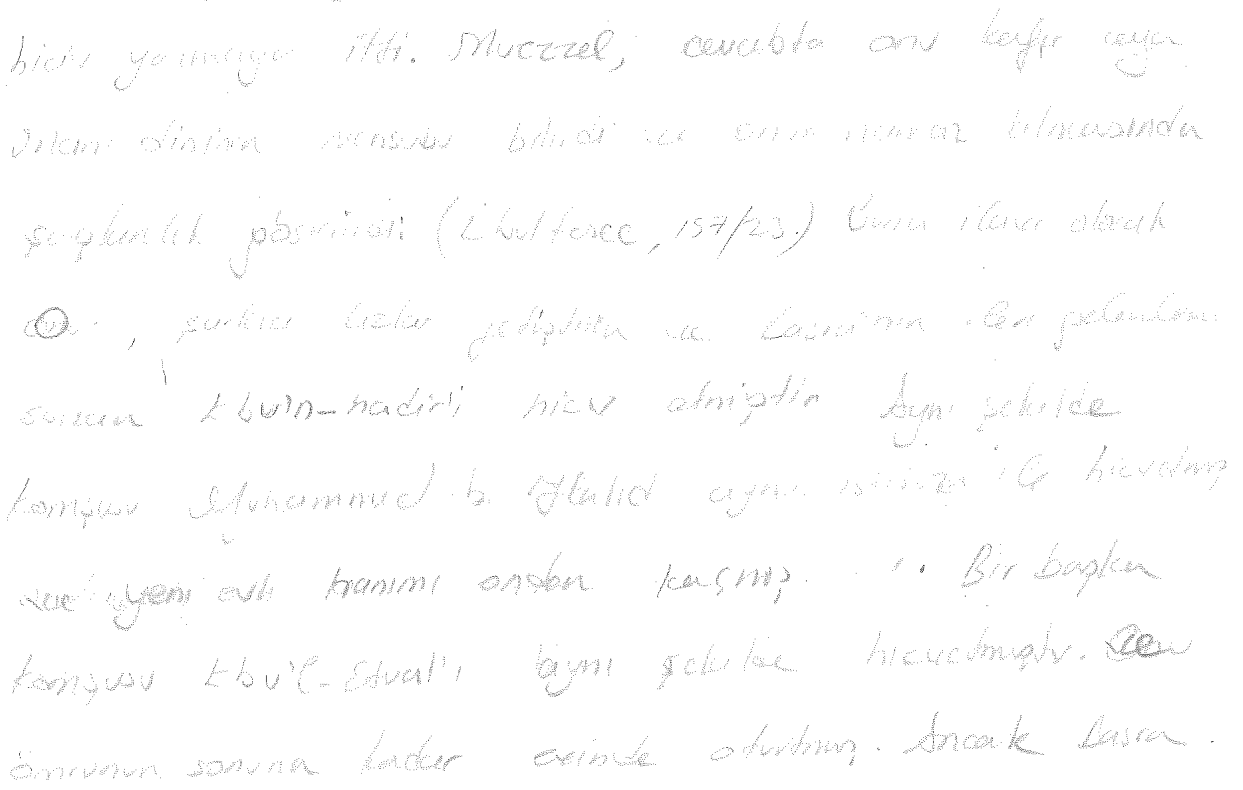 hicv yazmaya itti. Muezzel, cevabta onu kafir veya
dinine mensubu bilirdi ve onun namaz kılmasında
şaşkınlık gösterirdi (Ebul ferec, 157/23.) Bunu ilave olarak
, şarkıcı kızlar yetiştiren ve Basra'nın ileri gelenlerine
sunan Ebu'n-nadir'i hicv etmiştir Aynı şekilde
komşusu Muhammed b. Halid aynı hicvetmiş
yeni evli hanımı ondan kaçmış. Bir başka
komşusu Ebu'l-Esved'i aynı şekilde hicvetmiştir.
ömrünün sonuna kadar evinde oturtmuş. Ancak Basra.